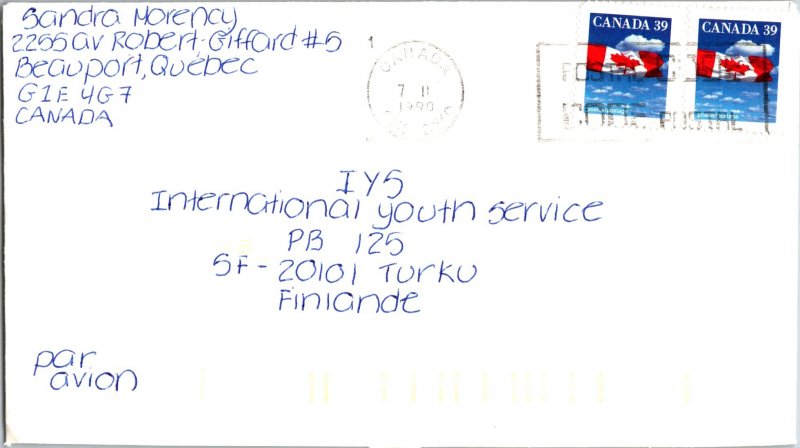 Sandra Morency
2255 av Robert-Giffard #5
Beauport, Québec
G1E 4G7
CANADA
1
CANADA
7 II
1990
CANADA 39
CANADA 39
POSTAL CODE
CODE POSTAL
IYS
International youth service
PB 125
SF - 20101 Turku
Finlande
par
avion